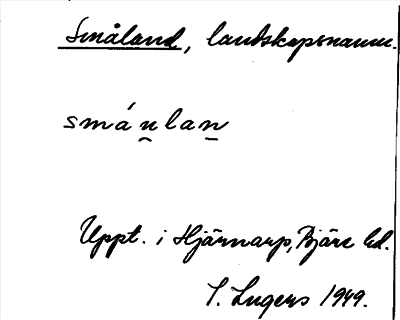 Småland, landskapsnamn.
smánlan
Uppt. i Hjärnarp, Bjäre hd.
S. Ingers 1949.